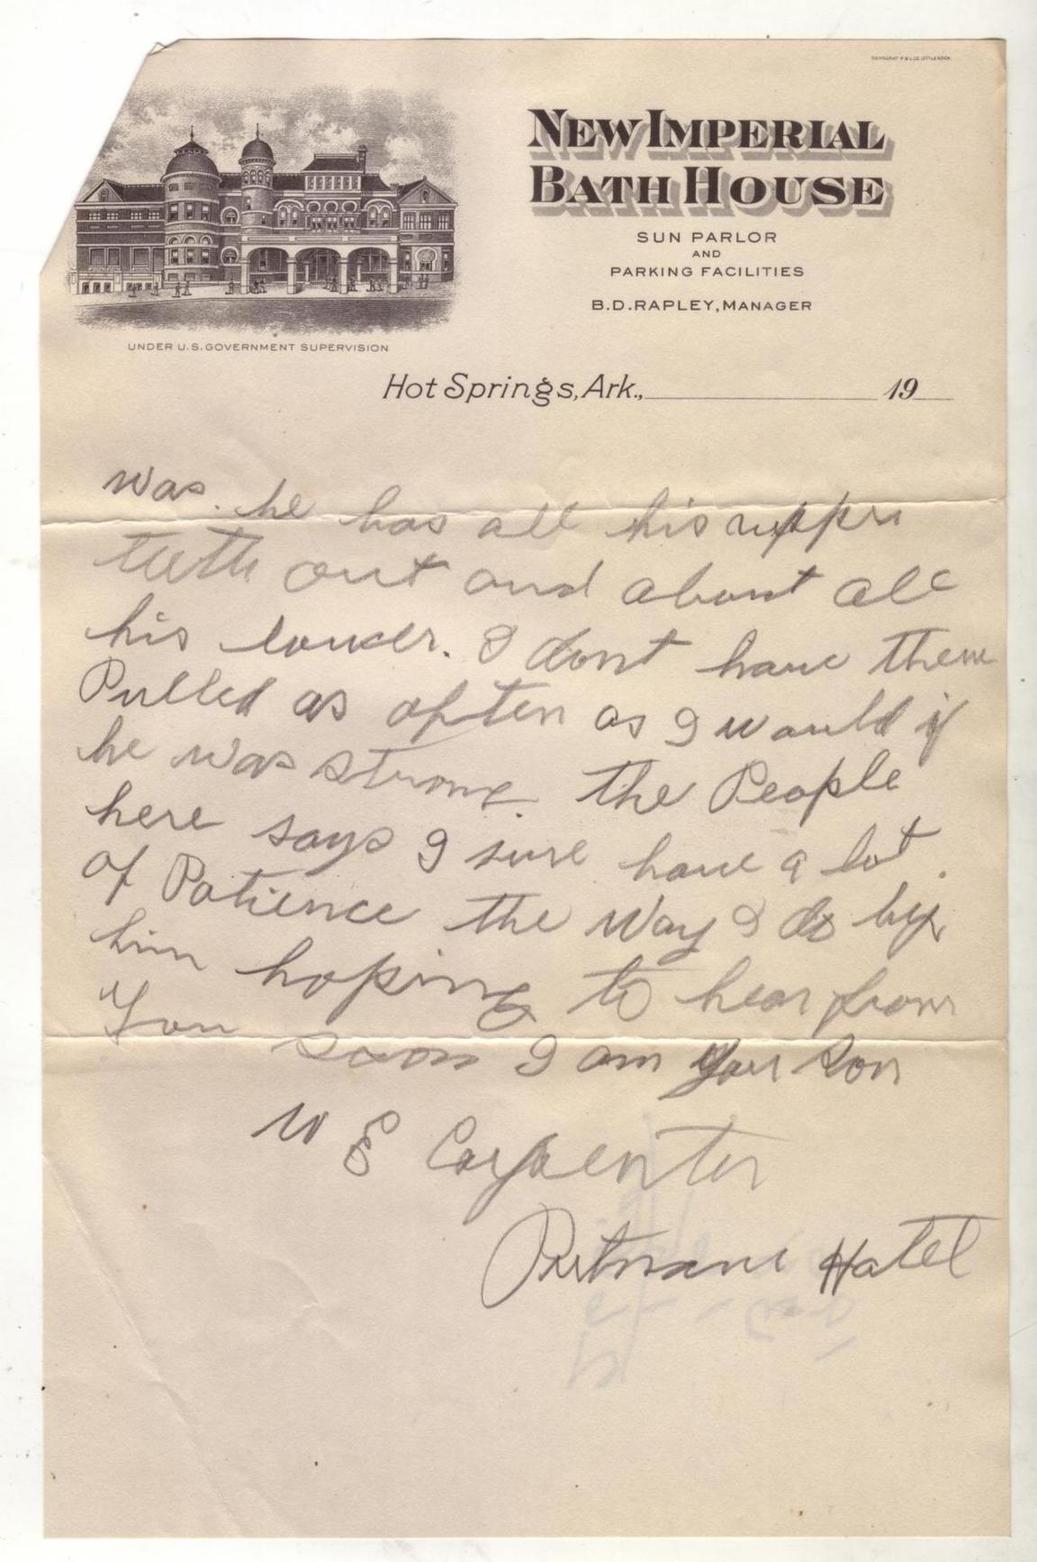 NEW IMPERIAL
BATH HOUSE
SUN PARLOR
AND
PARKING FACILITIES
B.D. RAPLEY, MANAGER
UNDER U.S. GOVERNMENT SUPERVISION
Hot Springs, Ark., 19
was. he has all his upper
teeth out and about all
his lower. I dont have them
Pulled as often as I would if
he was strong. the People
here says I sure have a lot
of Patience the Way I do by
him hoping to hear from
You soon I am your son
W E Carpenter
Putnam Hotel